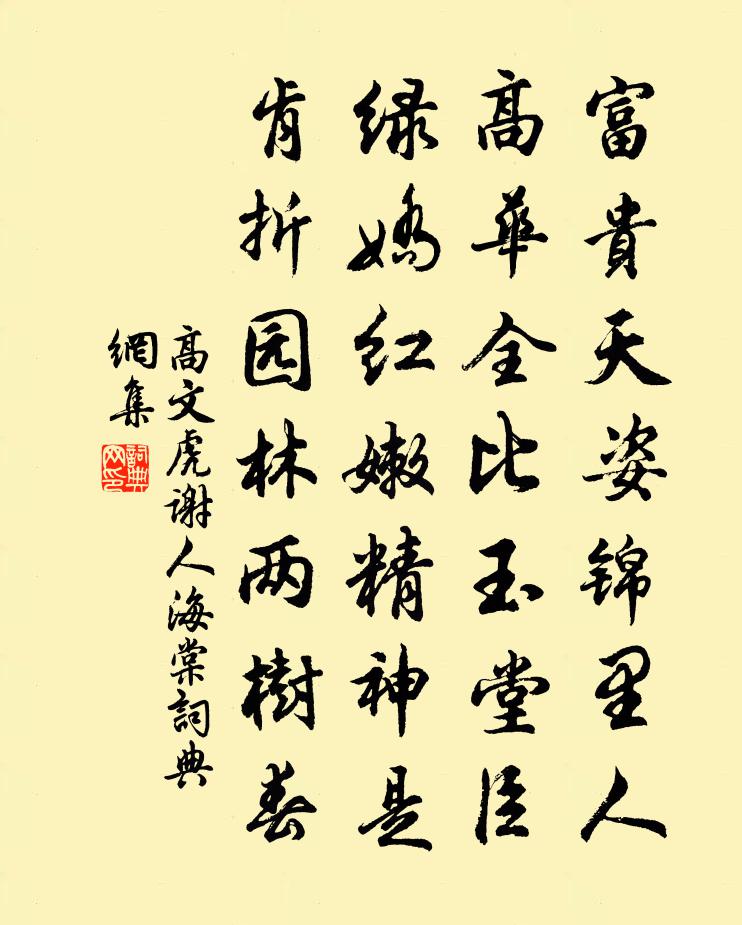 富貴天姿锦里人
高華全比玉堂臣
绿嬌红嫩精神是
肯折园林两樹春
高文虎谢人海棠詞典
網集
詞典
网印